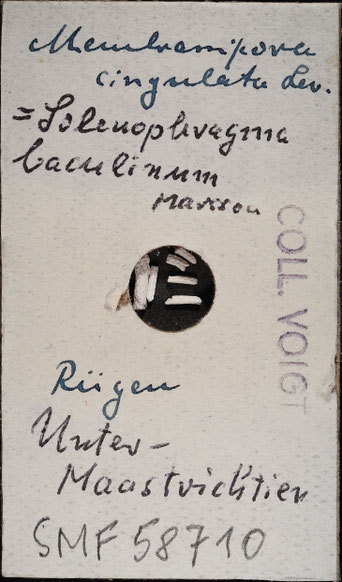 Membranipora
cingulata Lev.
=Solenophragma
baculinum
Marsson
COLL. VOIGT
Rügen
Unter-
Maastrichtien
SMF 58710